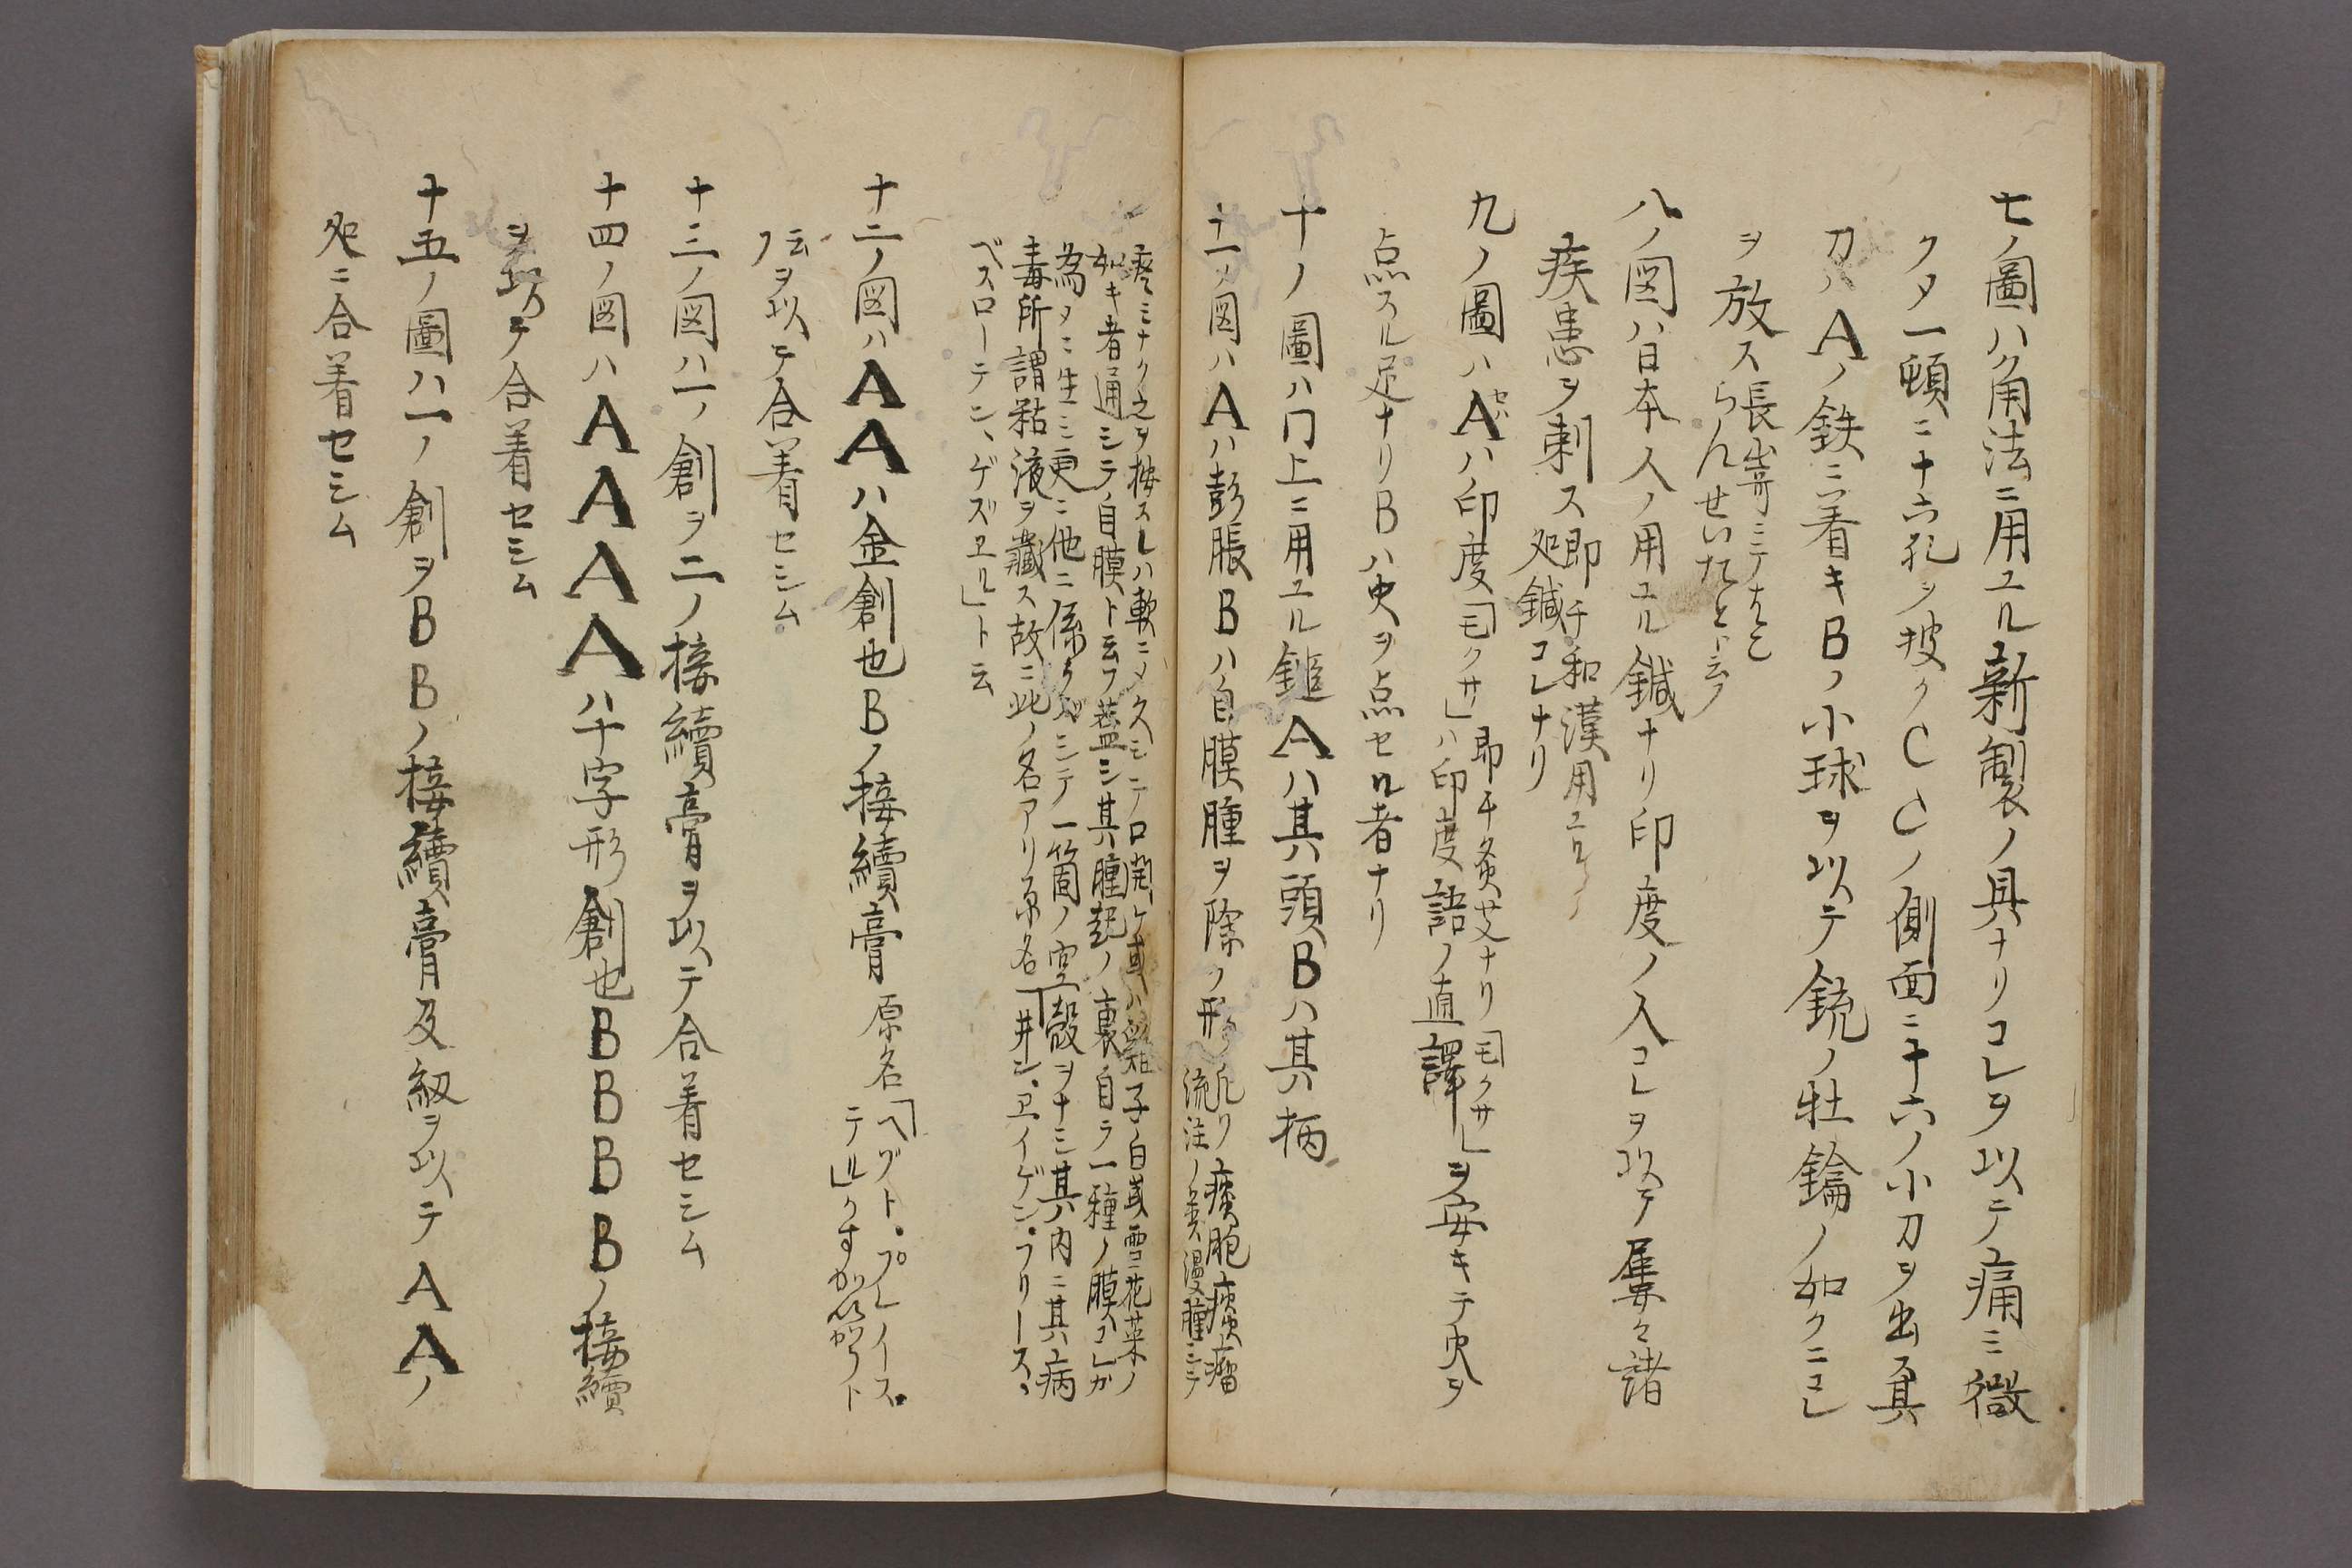 七ノ圖ハ角法ニ用ユル新製ノ具ナリコレヲ以テ痛ミ微
クタ一頓ニ十六孔ヲ披クCCノ側面ニ十六ノ小刀ヲ出其
刀ハAノ鉄ニ着キBノ小球ヲ以テ銃ノ牡鑰ノ如クニコレ
ヲ放ス長崎ニテ
らんせいたと云
八ノ図ハ日本人ノ用ユル鍼ナリ印度ノ人コレヲ以テ屢々諸
疾患ヲ刺ス即チ和漢用ユル
処鍼コレナリ
九ノ圖ハAハ印度「モクサ」即チ灸艾ナリ「モクサ」
ハ印度語ノ直譯ヲ安キテ火ヲ
点スル足ナリBハ火ヲ点セル者ナリ
十ノ圖ハ门上ニ用ユル鎚Aハ其頭Bハ其柄
十一ノ図ハAハ彭脹Bハ自膜腫ヲ除ク形凡ソ痰胞痰瘤
流注ノ類漫腫ニテ
疼ミナク之ヲ按スレハ軟ニメ久シテ口開ケ或ハ雞子白或雪花菜ノ
如キ者通シテ自膜ト云フ蓋シ其腫起ノ裏自ラ一種ノ膜コレカ
為メニ生ミ更ニ他ニ係ラズシテ一箇ノ空殻ヲナミ其内ニ其病
毒所謂粘液ヲ藏ス故ニ此ノ名アリ原名「井ン、ヱイゲン・フリース、
ベスローテン、ゲズヱル」ト云
十二ノ図ハAAハ金創也Bノ接續膏原名「ヘグト・プレイース・
テル」
云フヲ以テ合着セシム
十三ノ図ハ一ノ創ヲ二ノ接續膏ヲ以テ合着セシム
十四ノ図ハAAAAハ十字形創也BBBBノ接續
ヲ以テ合着セシム
十五ノ圖ハ一ノ創ヲBBノ接續膏及紉ヲ以テAAノ
処ニ合着セシム